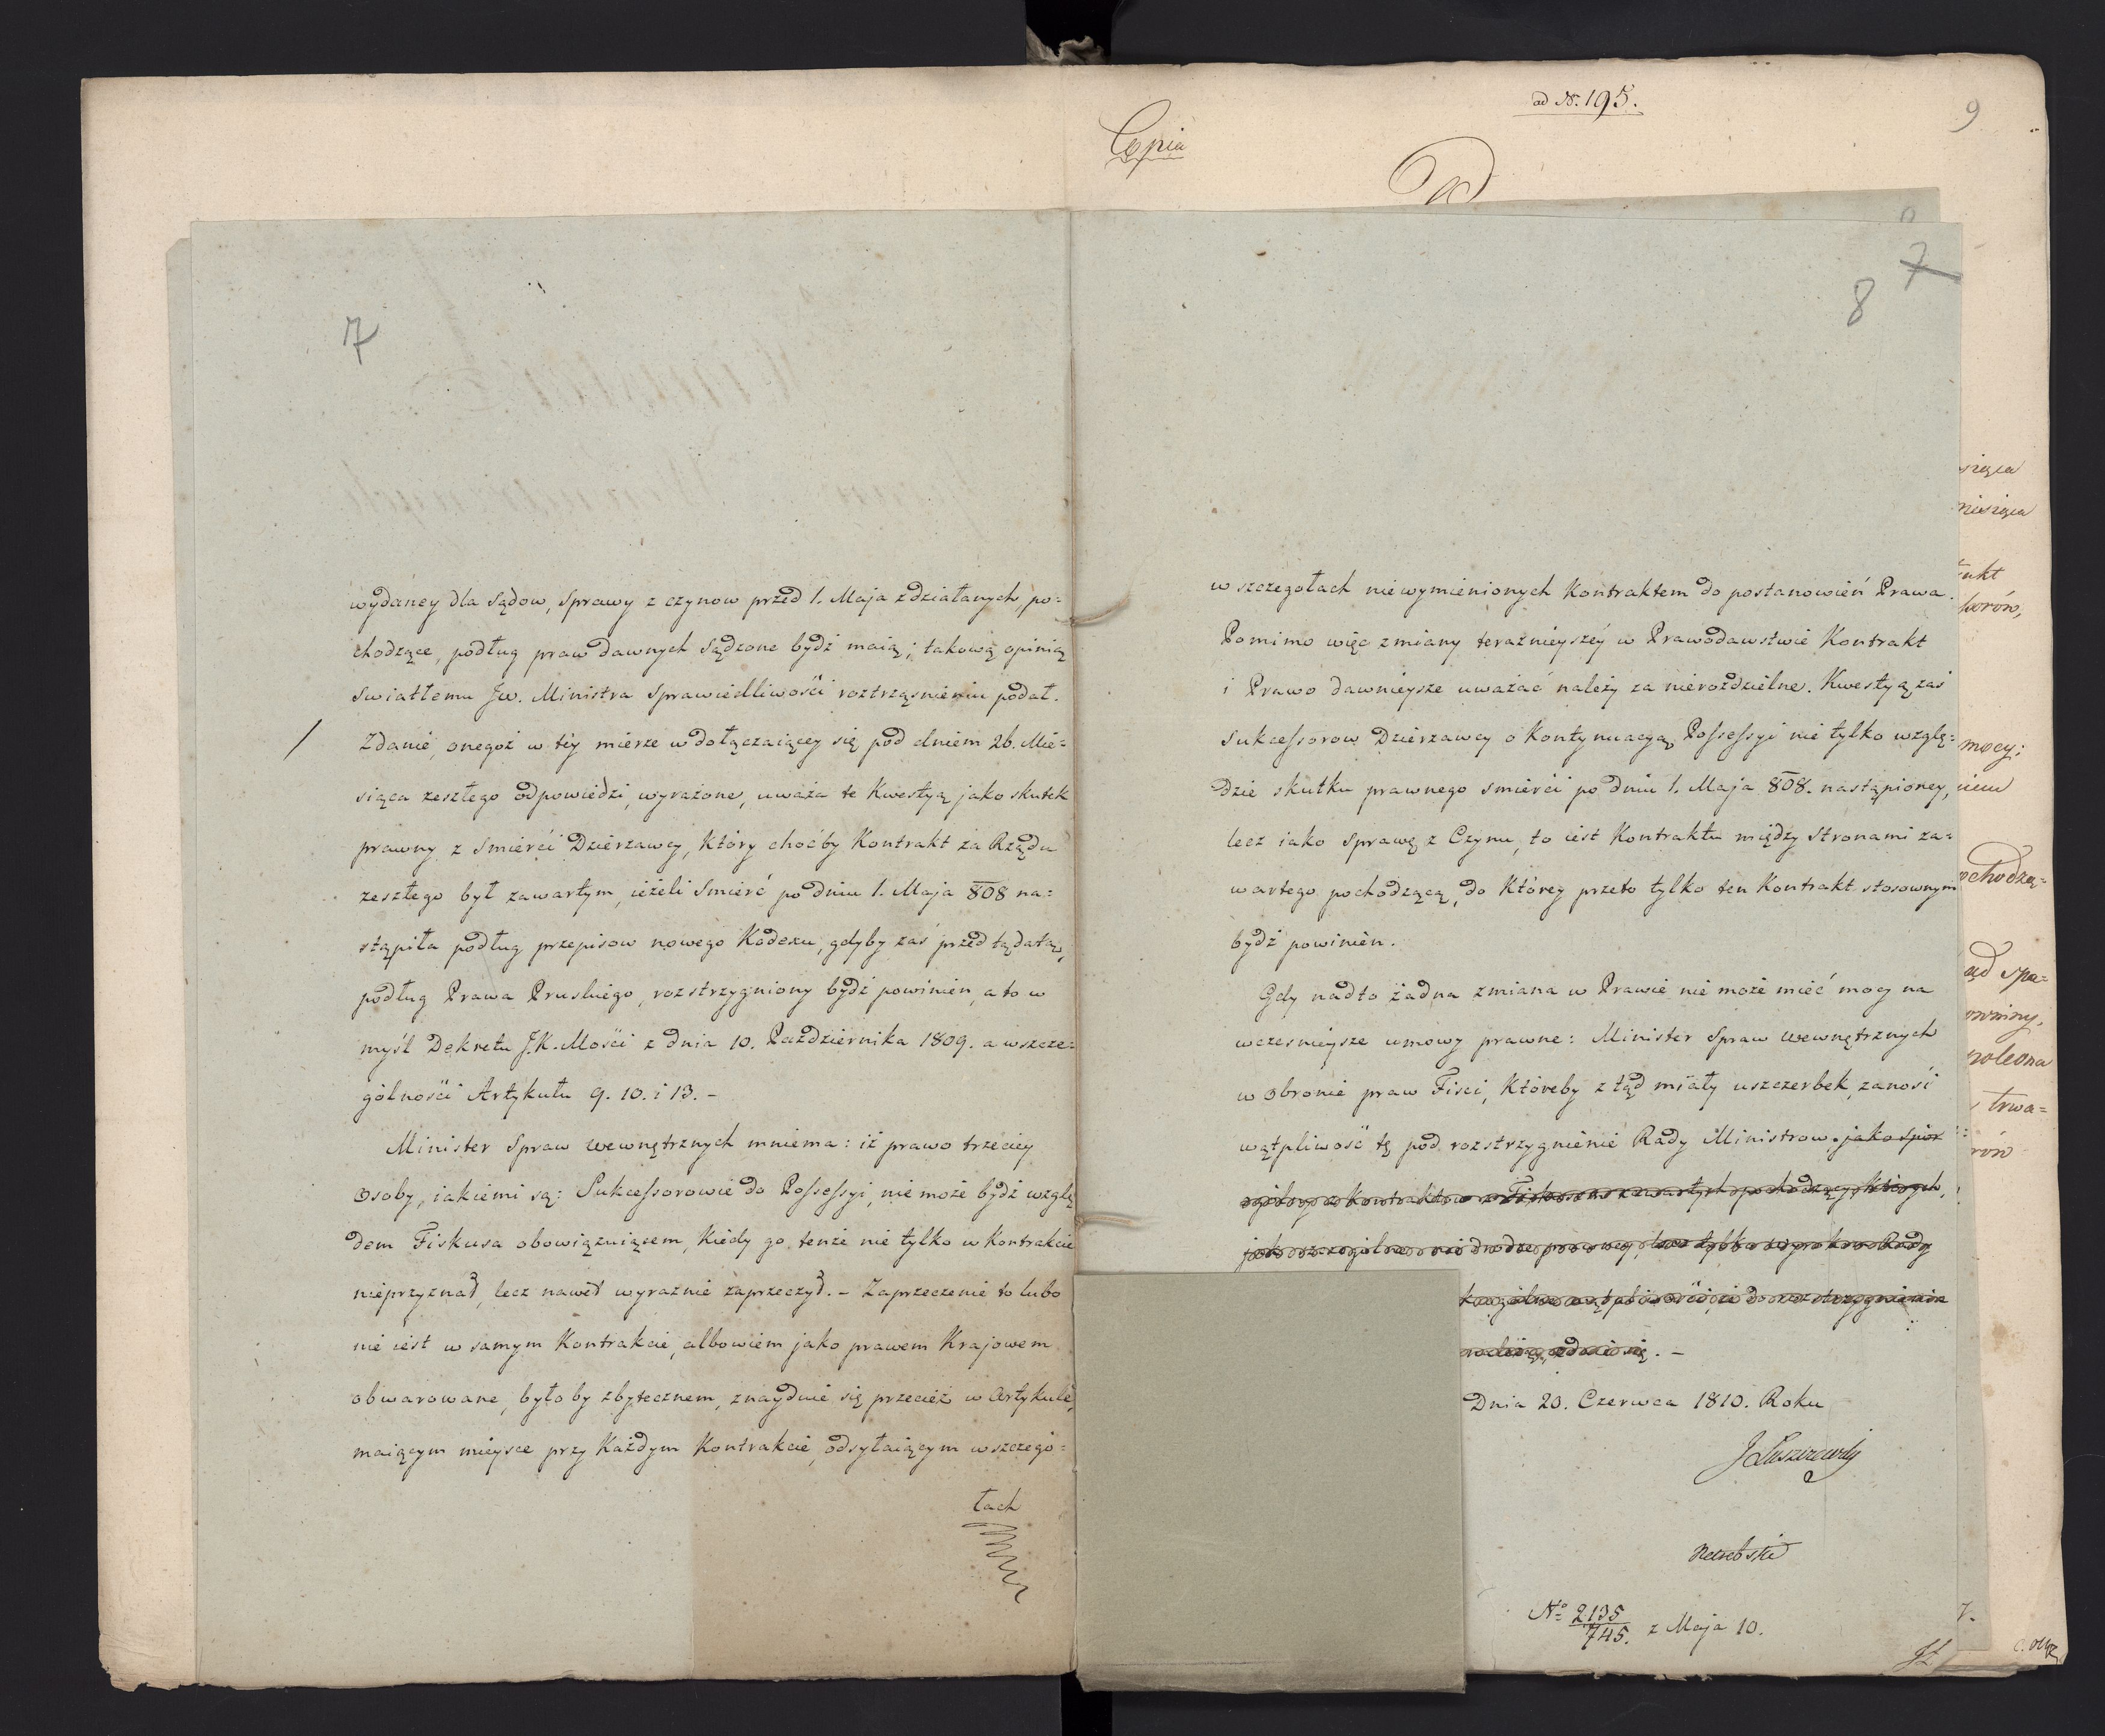 ad N. 195.
9
Copia
7
wydaney dla Sądow, Sprawy z czynow przed 1. Maja zdziałanych, po=
chodzące, podług praw dawnych Sądzone bydź maią; takową opinią
swiatłemu Jw. Ministra Sprawiedliwości roztrząsnieniu podał.
/ Zdanie, onegoż w tey mierze w dołączaiącey się pod dniem 26. Mie=
siąca zeszłego odpowiedzi, wyrażone, uważa te Kwestyą jako skutek
prawny z Smierci Dzierzawcy, Który choćby Kontrakt za Rządu
zeszłego był zawartym, ieżeli Smierć po dniu 1. Maja 808 na=
stąpiła podług przepisow nowego Kodexu, gdyby zaś przed tą datą,
podług Prawa Pruskiego, rozstrzygniony bydź powinien, a to w
myśl Dekretu J.K. Mości z dnia 10. Pazdziernika 1809. a wszcze=
gólności Artykułu 9. 10. i 13. -
Minister Spraw wewnętrznych mniema: iż prawo trzeciey
Osoby, iakiemi są: Sukcessorowie do Possessyi, nie może bydź wzglę
dem Fiskusa obowiązuiącem, Kiedy go tenże nie tylko w Kontrakcie
nieprzyznał, lecz nawet wyraznie zaprzeczył. - Zaprzeczenie to lubo
nie iest w samym Kontrakcie, albowiem jako prawem Krajowem
obwarowane, było by zbytecznem, znayduie się przecież w Artykule,
maiącym mieysce przy Każdym Kontrakcie, odsyłaiącym wszczegó=
łach
7
8
w szczegołach niewymienionych Kontraktem do postanowień Prawa.
Pomimo więc zmiany teraźnieyszey w Prawodawstwie Kontrakt
i Prawo dawnieysze uważać należy za nierozdzielne. Kwestyą zaś
Sukcessorow Dzierzawcy o Kontynuacyą Possessyi nie tylko wzglę=
dzie skutku prawnego smierci po dniu 1. Maja 808. nastąpioney,
lecz iako Sprawę z Czynu, to iest Kontraktu między Stronami za=
wartego pochodzącą, do Którey przeto tylko ten Kontrakt stosownym
bydź powinien.
Gdy nadto żadna zmiana w Prawie nie może mieć mocy na
wczesnieysze umowy prawne: Minister Spraw wewnętrznych
w obronie praw Fisci, Któreby z tąd miały uszczerbek, zanosi
wątpliwość tę pod rozstrzygnienie Rady Ministrow. jako spór
Kontraktow z Fiskusem zawartych pochodzący, których,
tylko wyrokow Rady
wątpliwości, do rozstrzygnienia
należą, zdaie się. -
Dnia 20. Czerwca 1810. Roku
J Łuszczewsky
N° 2135/745. z Maja 10.
siąca
miesiąca
mocy:
niem
ochodzą=
ąd spa=
owniny,
poleona
trwa=
rów
7.